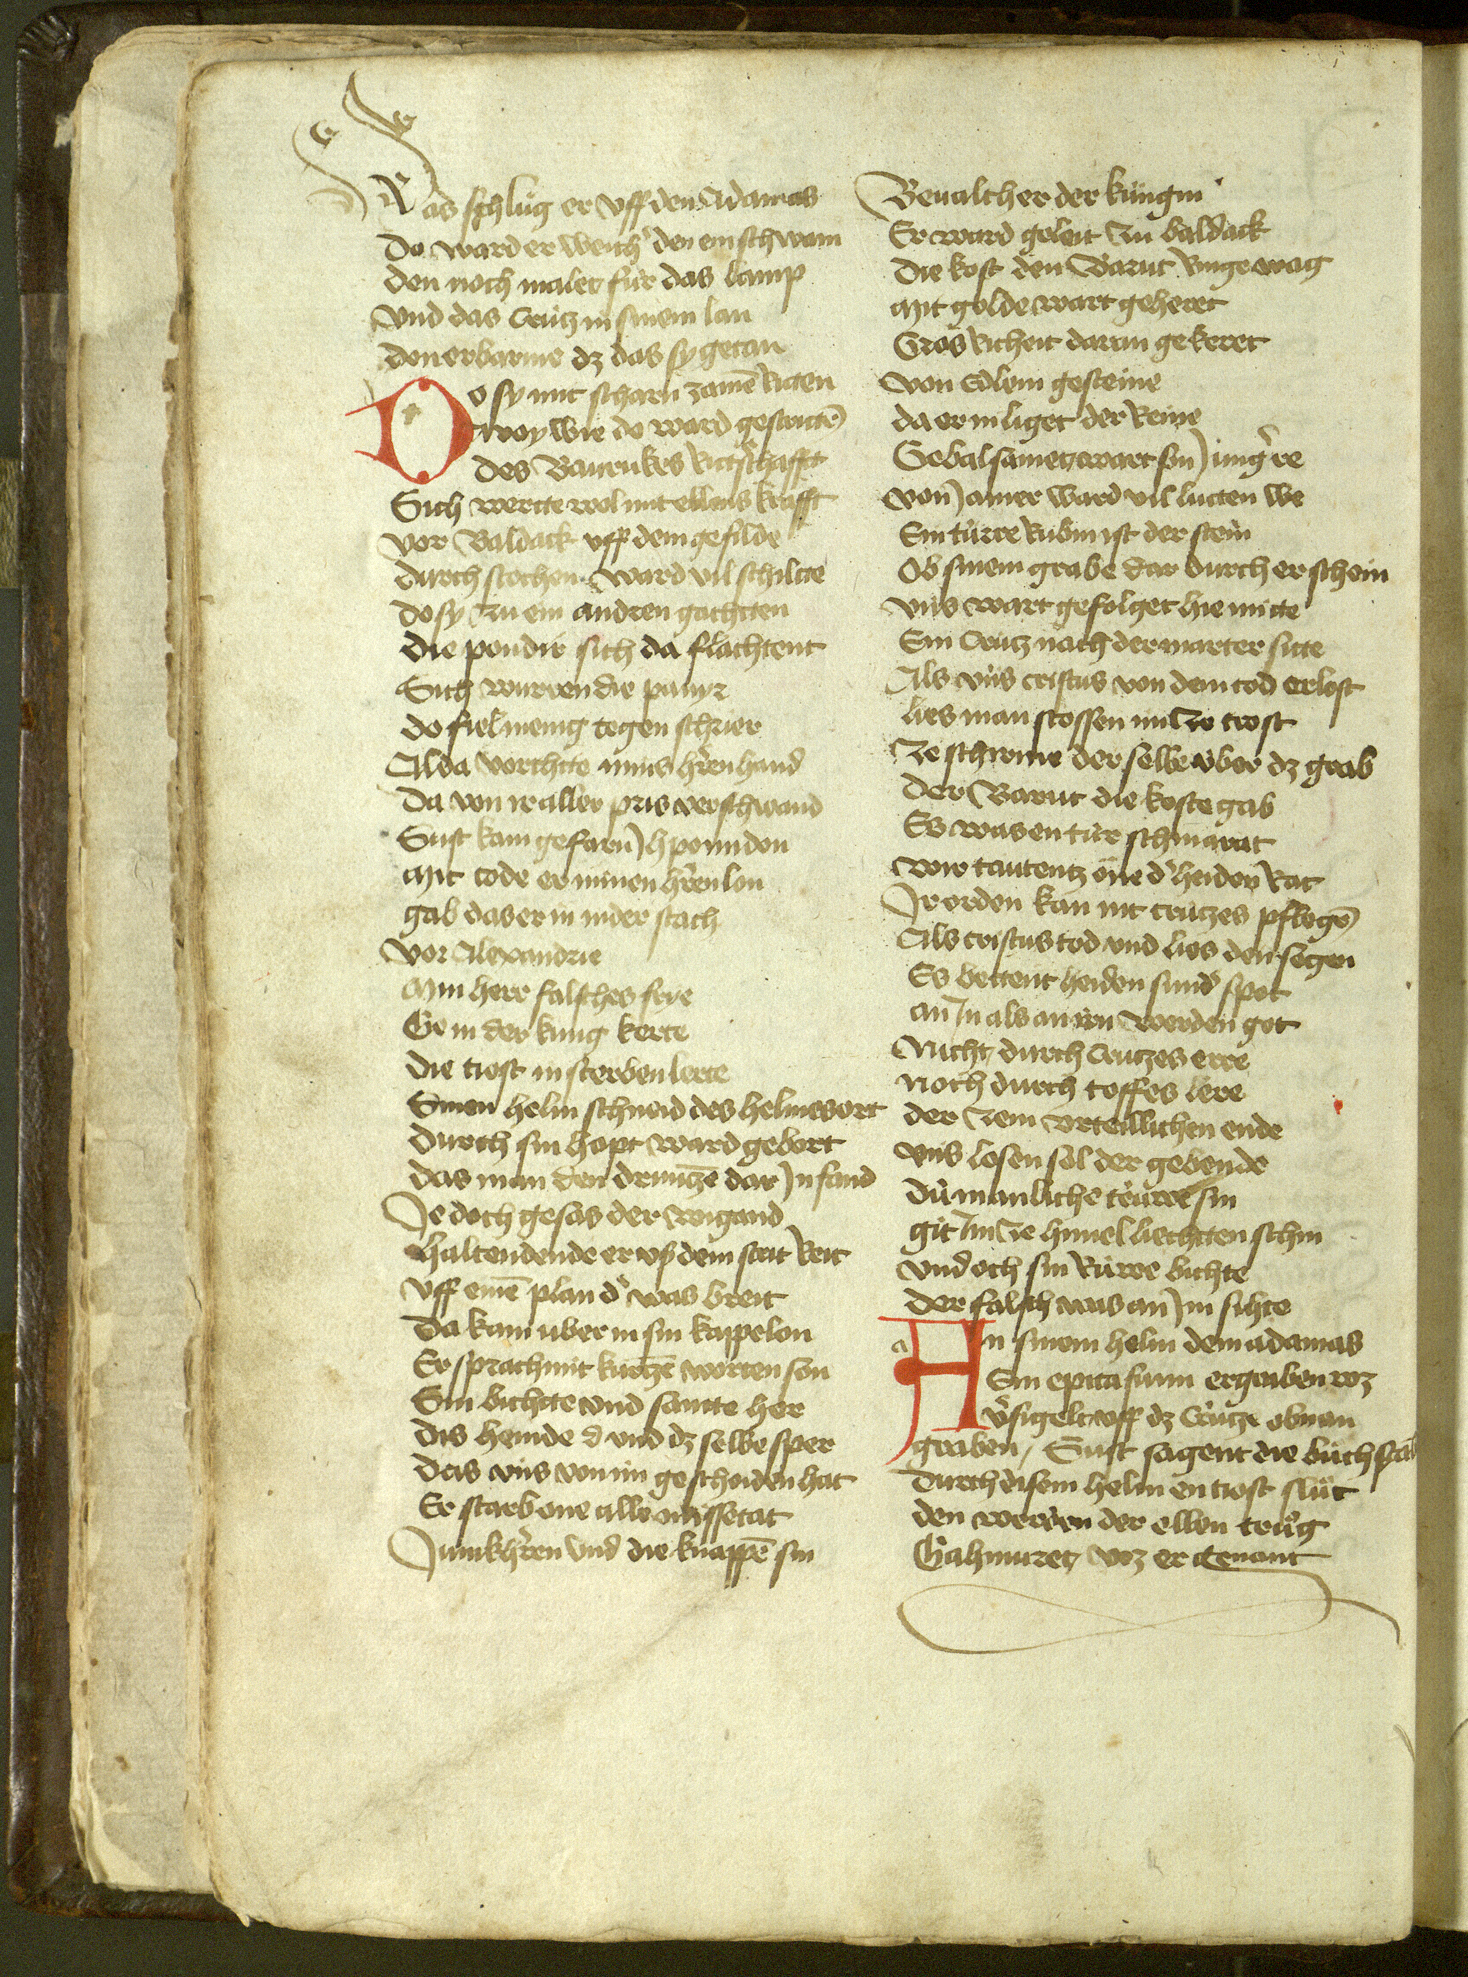 Ras schlůg er vff den Adamas
Do ward er weich den ein schwam
den noch malet für das lamp
Vnd das Crütz in sinem lan
den erbarme dz das sy getan
Do sy mit scharn zamē ritten
awoy wie do ward gestrittē
des Barrukes ritschafft
Sich wertte wol mit ellens krafft
vor Baldack vff dem gefilde
durch stochen ward vil schiltte
do sy zu ein andren gachtten
die pondir sich da flachtent
Sich wurren die panyr
do fiel menig tegen schrier
Alda vorchtte mins hren hand
Da von ir aller pris verschwand
Sust kam gefarn Jpomidon
Mit tode er minen hren lon
gab das er in nider stach
Vor Alexandrie
Min herr falsches frye
Ge in der kung kerte
die tiost in sterben lerte
Sinen helm schneid des helmes ort
Durch sin hopt ward gebort
das man den drumzē dar Jn fand
Je doch gesas der wigand
haltendende er vß dem strit reit
Vff einē plan d' was breit
Da kam uber in sin kappelon
Er sprach mit kurtzē worten son
Sin bichtte vnd santte her
dis hemde d vnd dz selbe sper
das vns von im gescheiden hat
Er starb one alle missetat
Junkhren vnd die knappē sin
Beualch er der küngin
Er ward geleit zu baldack
die kost den Barut ringe wag
Mit golde wart geheret
Gros richeit dar in gekeret
von Edlem gesteine
da er in liget der Reine
Gebalsamet wart sin jung're
von jamer ward vil lütten we
Ein türre rubin ist der stein
Ob sinem grabe dar durch er schein
vns wart gefolget hie mitte
Ein Crütz nach der marter sitte
Als vns cristus von dem tod erlost
lies man stossen im ze trost
Ze schirme der selbe über dz grab
der Barut die koste gab
Es was en tür schmarat
wir tautentz one d' heiden rat
Jr orden kan nit crützes pflegē
Als cristus tod vnd lies den segen
Es bettent heiden sund' spot
an Jn als an irn werden got
Nicht durch Crützes erre
noch durch toffes lere
der zem vrteillichen ende
vns losen sol der gebende
Dü manliche trürre sin
git Jm ze himel liechtten schin
vnd och sin Rüwe bichte
der falsch was an Jm sichte
An sinem helm dem adamas
Ein epitafium ergraben wz
v'sigelt vff dz Crütze obnan
graben / Sust sagent die büchstab
durch disem helm en tiost slüt
den werden der ellen trüg
Gahmuret wz er genant